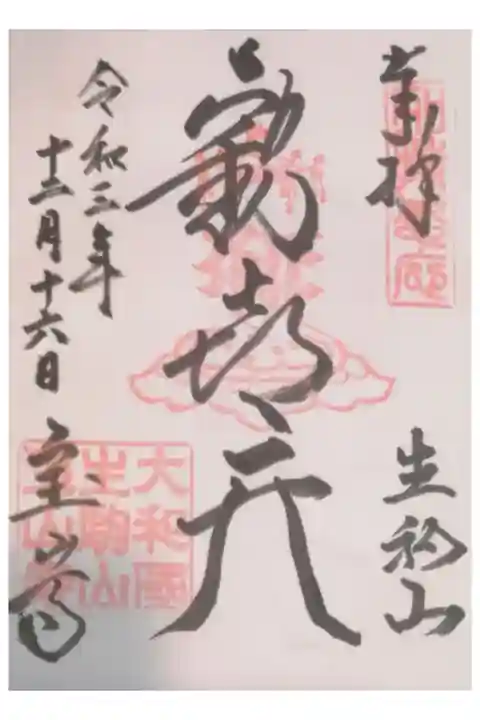 奉拝
生駒山
歓喜天
令和三年
十二月十六日
宝山寺
大和國
生駒山